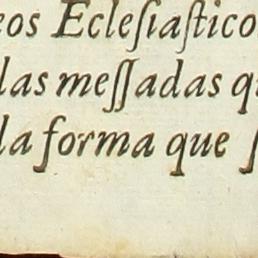 eos Eclesiastico
las messadas q
la forma que s